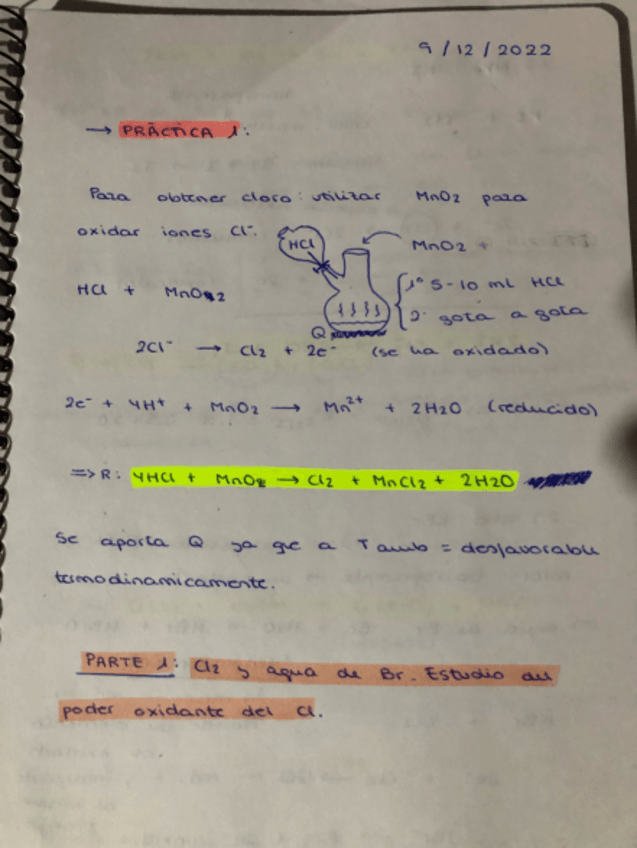 9/12/2022
→ PRÁCTICA 1:
Para obtener cloro: utilizar MnO2 para
oxidar iones Cl-.
HCl
MnO2 +
HCl + MnO2
1º 5-10 ml HCl
2º gota a gota
Q
2Cl- → Cl2 + 2e- (se ha oxidado)
2e- + 4H+ + MnO2 → Mn2+ + 2H2O (reducido)
=> R: 4HCl + MnO2 → Cl2 + MnCl2 + 2H2O
Se aporta Q ya que a T amb = desfavorable
termodinamicamente.
PARTE 1: Cl2 y agua de Br. Estudio del
poder oxidante del Cl.